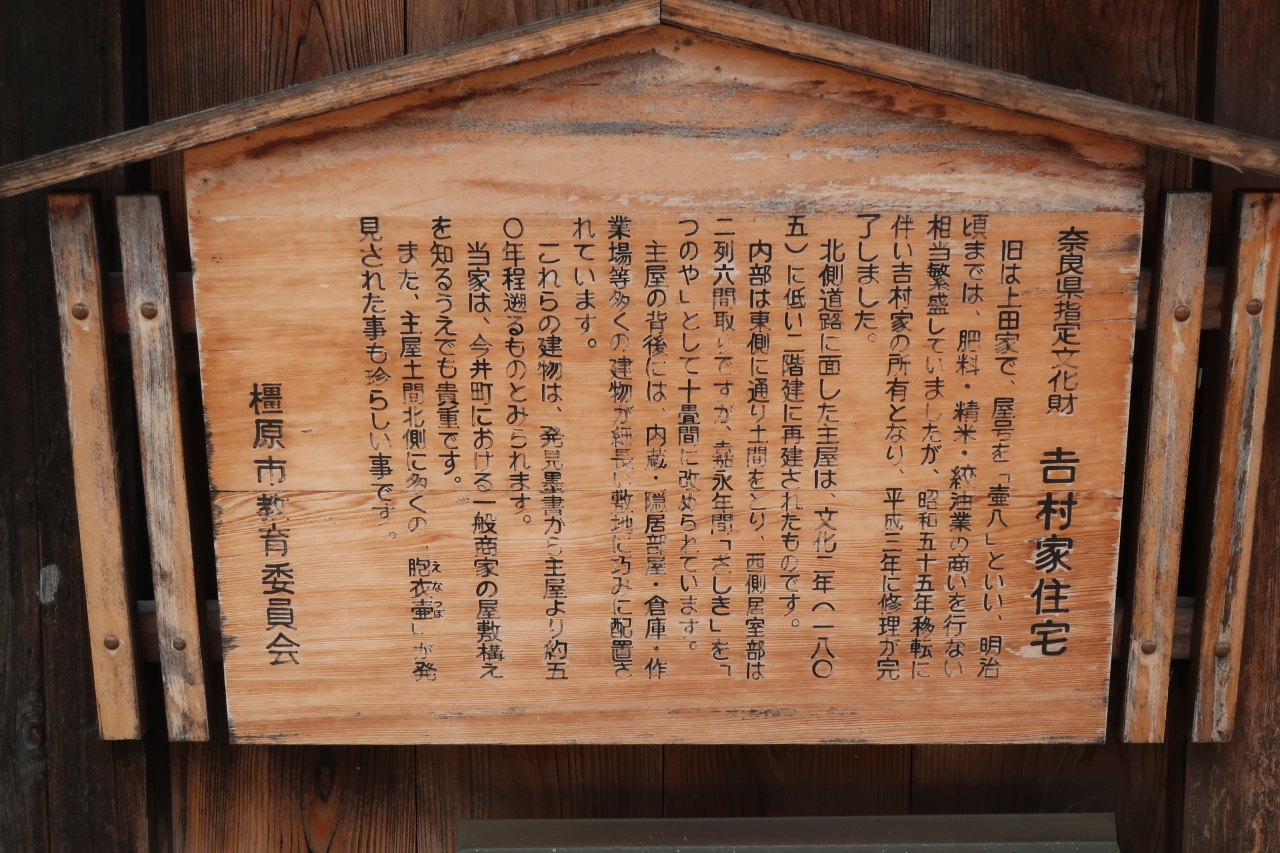 奈良県指定文化財　吉村家住宅
旧は上田家で、屋号を「壷八」といい、明治
頃までは、肥料・精米・絞油業の商いを行ない
相当繁盛していましたが、昭和五十五年移転に
伴い吉村家の所有となり、平成二年に修理が完
了しました。
北側道路に面した主屋は、文化二年（一八〇
五）に低い二階建に再建されたものです。
内部は東側に通り土間をとり、西側居室部は
二列六間取りですが、嘉永年間「ざしき」を「
つのや」として十畳間に改められています。
主屋の背後には、内蔵・隠居部屋・倉庫・作
業場等多くの建物が細長い敷地に巧みに配置さ
れています。
これらの建物は、発見墨書から主屋より約五
〇年程遡るものとみられます。
当家は、今井町における一般商家の屋敷構え
を知るうえでも貴重です。
また、主屋土間北側に多くの「胞衣壷」が発
えなつぼ
見された事も珍らしい事です。
橿原市教育委員会